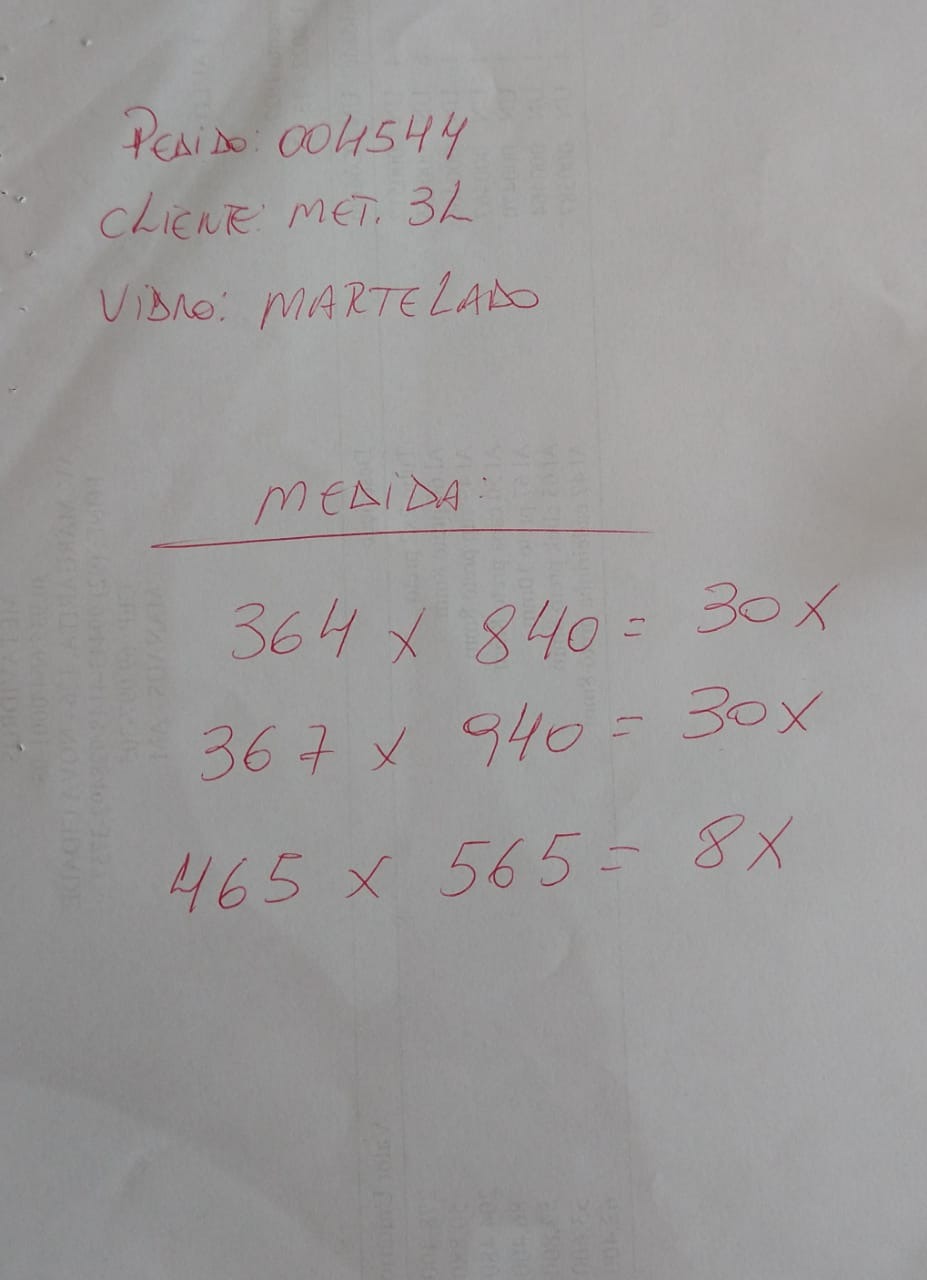 PEDIDO: 004544
CLIENTE: MET. 3L
VIDRO: MARTELADO
MEDIDA:
364 x 840 = 30x
367 x 940 = 30x
465 x 565 = 8x